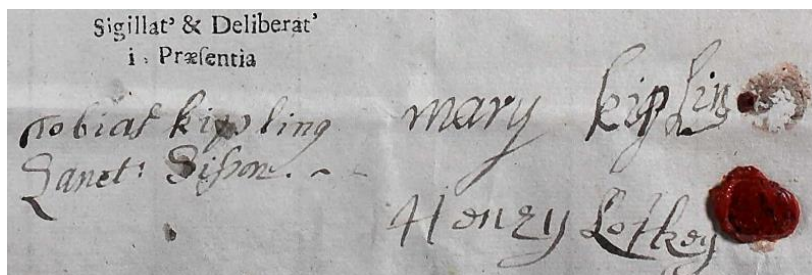 Sigillat' & Deliberat'
i: Præsentia
Tobias kipling
Lanct: Sisson.
mary kiplin
Henry Lofkey